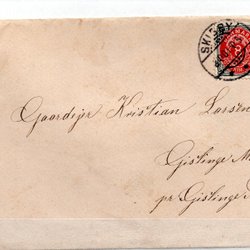 Gaardejer Kristian Larsen
Gislinge M
pr Gislinge